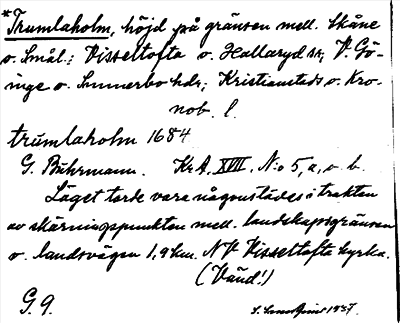 *Trumlaholm, höjd på gränsen mell. Skåne
o. Smål.; Visseltofta o. Hallaryd sn; V. Gö-
inge o. Sunnerbo hdr; Kristianstads o. Kro-
nob. l.
trŭmlaholm 1684
G. Bŭhrmann. KrA. XVIII. N:o 5, a, o. b.
Läget torde vara någonstädes i trakten
av skärningspunkten mell. landskapsgränsen
o. landsvägen 1,9 km. NV Visseltofta kyrka.
(Vänd!)
G 9. 1937.